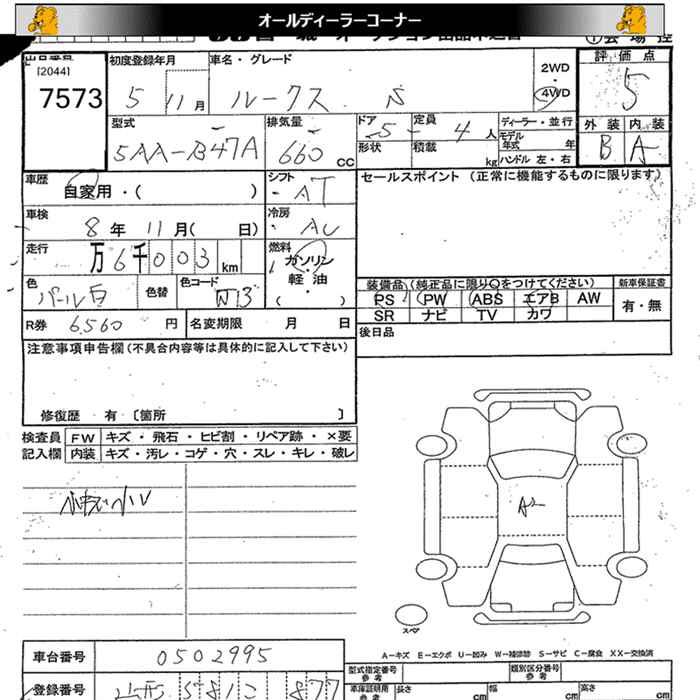 オールディーラーコーナー
[2044]
7573
初度登録年月
5 11月
車名・グレード
ルークス S
2WD
4WD
評価点
5
外装 内装
B A
型式
5AA-B47A
排気量
660 CC
ドア
5
定員
4人
形状
積載
kg
ディーラー・並行
モデル年式 年
ハンドル 左・右
車歴
自家用・( )
シフト
・AT
セールスポイント (正常に機能するものに限ります)
車検
8年 11月( 日)
冷房
・AC
走行
万6千003km
燃料
ガソリン
軽・油
( )
色
パール白
色替
色コード
R券 6,560円
名変期限 月 日
装備品(純正品に限り○をつけてください)
PS PW ABS エアB AW
SR ナビ TV カワ
新車保証書
有・無
後日品
注意事項申告欄(不具合内容等は具体的に記入して下さい)
修復歴 有 〔箇所 〕
検査員記入欄
FW キズ・飛石・ヒビ割・リペア跡・×要
内装 キズ・汚レ・コゲ・穴・スレ・キレ・破レ
A2
スペア
A-キズ E-エクボ U-凹み W-補修跡 S-サビ C-腐食 XX-交換済
車台番号 0502995
登録番号 山形 581 877
型式指定番号 参考
類別区分番号 参考
車庫証明用 参考
長さ cm
幅 cm
高さ cm